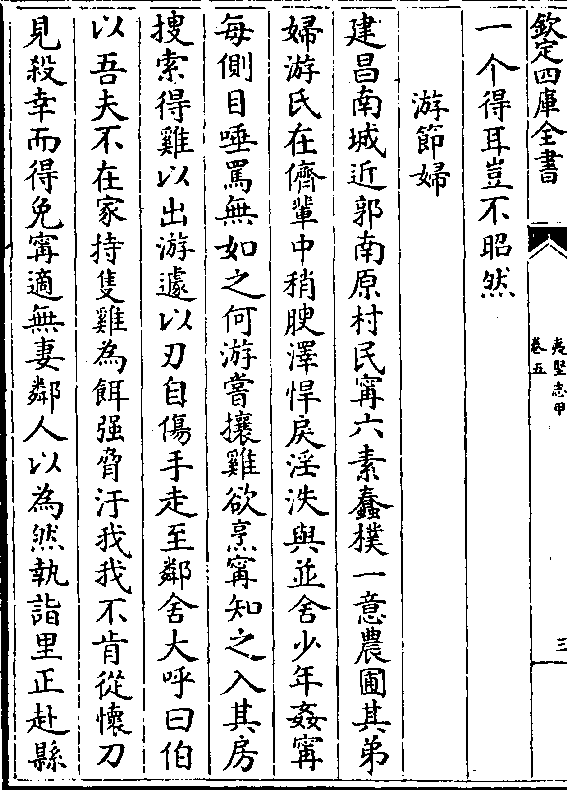 欽定四庫全書
夷堅志甲
卷五
三
一个得耳豈不昭然
游節婦
建昌南城近郭南原村民甯六素蠢樸一意農圃其弟
婦游氏在儕輩中稍腴澤悍戾淫泆與並舍少年姦甯
每側目唾罵無如之何游嘗攘雞欲烹甯知之入其房
搜索得雞以出游遽以刃自傷手走至鄰舍大呼曰伯
以吾夫不在家持隻雞為餌强脅汙我我不肯從懷刀
見殺幸而得免甯適無妻鄰人以為然執詣里正赴縣